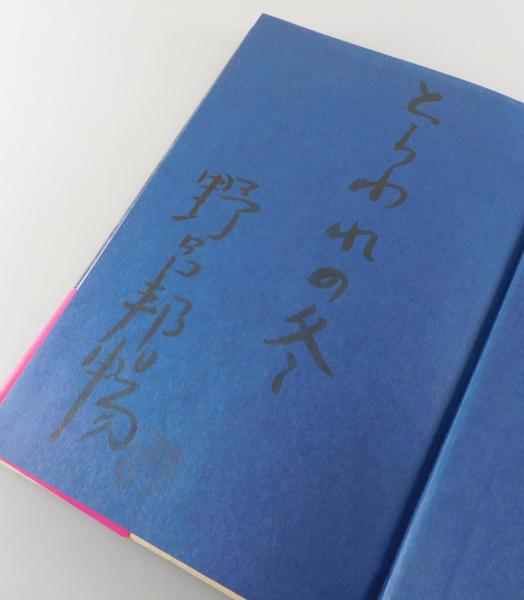 とらわれの冬
野呂邦暢